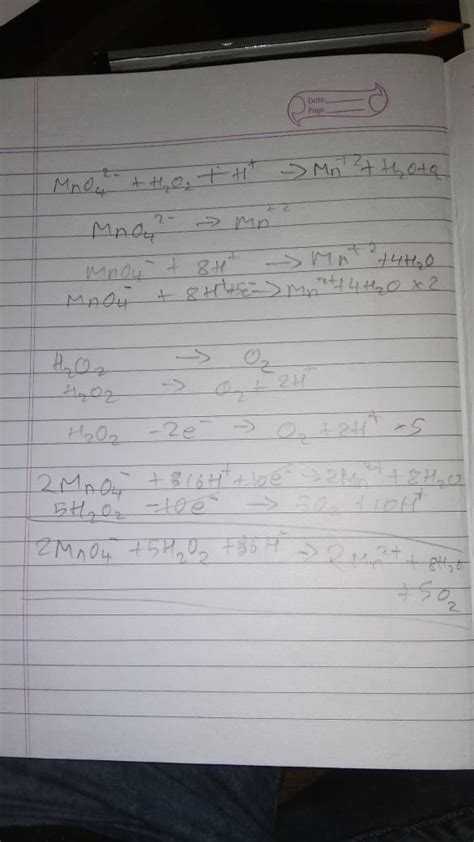 Date
Page
MnO₄²⁻ + H₂O₂ + H⁺ → Mn⁺² + H₂O +
MnO₄²⁻ → Mn⁺²
MnO₄⁻ + 8H⁺ → Mn⁺² + 4H₂O
MnO₄⁻ + 8H⁺ + 5e⁻ → Mn²⁺ + 4H₂O × 2
H₂O₂ → O₂
H₂O₂ → O₂ + 2H⁺
H₂O₂ - 2e⁻ → O₂ + 2H⁺ × 5
2MnO₄⁻ + 16H⁺ + 10e⁻ → 2Mn²⁺ + 8H₂O
5H₂O₂ - 10e⁻ → 5O₂ + 10H⁺
2MnO₄⁻ + 5H₂O₂ + 6H⁺ → 2Mn²⁺ + 8H₂O
+ 5O₂